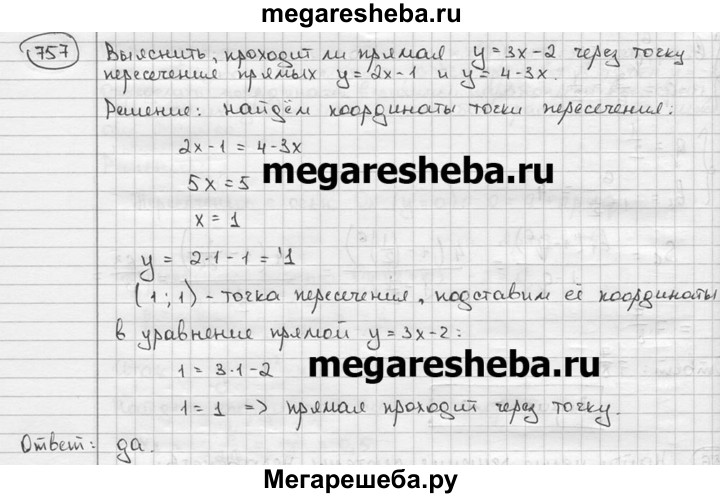 megaresheba.ru
757 Выяснить, проходит ли прямая y = 3x - 2 через точку
пересечения прямых y = 2x - 1 и y = 4 - 3x.
Решение: найдём координаты точки пересечения:
2x - 1 = 4 - 3x
megaresheba.ru
5x = 5
x = 1
y = 2·1 - 1 = 1
(1; 1) - точка пересечения, подставим её координаты
в уравнение прямой y = 3x - 2:
1 = 3·1 - 2
megaresheba.ru
1 = 1 => прямая проходит через точку.
Ответ: да.
Мегарешеба.ру